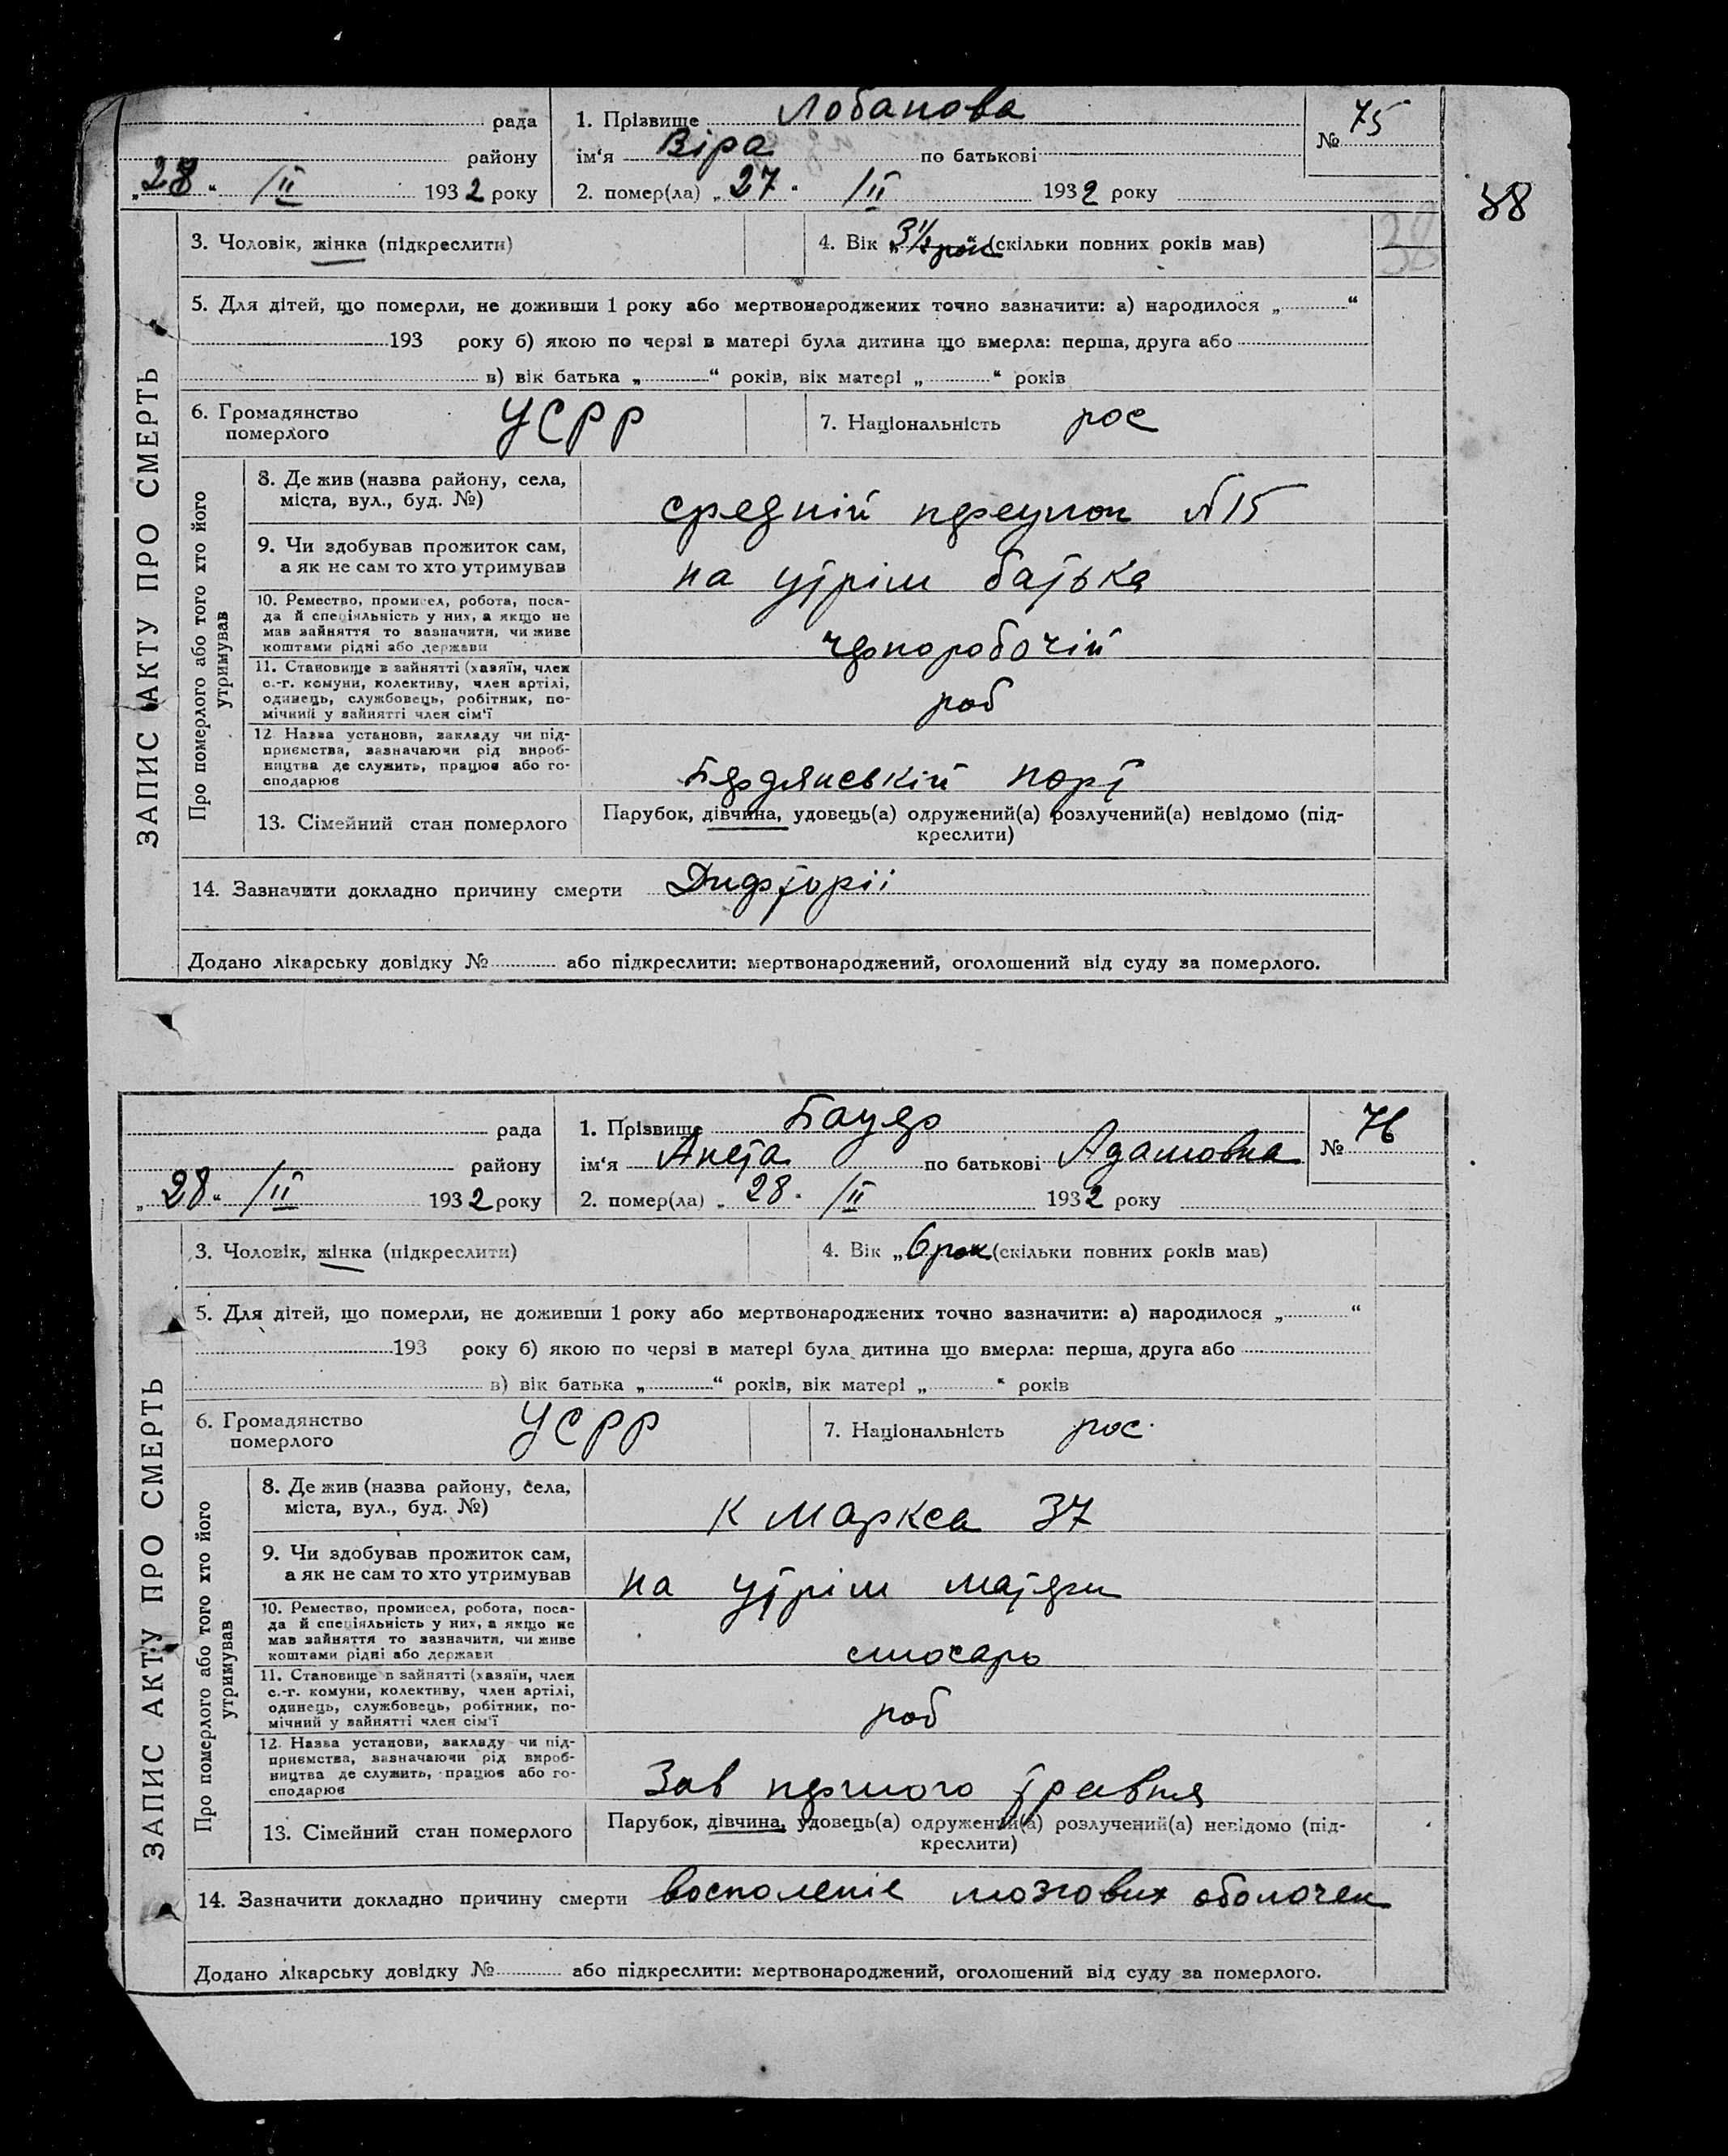 рада
1. Прізвище Лобанова
№ 75
району
ім‘я Віра по батькові
„28“ /II 1932 року
2. помер(ла) „27“ /II 1932 року
38
3. Чоловік, жінка (підкреслити)
4. Вік „3½ рок“ (скільки повних років мав)
38
5. Для дітей, що померли, не доживши 1 року або мертвонароджених точно зазначити: а) народилося „ “
193 року б) якою по черзі в матері була дитина що вмерла: перша, друга або
в) вік батька „ “ років, вік матері „ “ років
6. Громадянство померлого УСРР
7. Національність рос
ЗАПИС АКТУ ПРО СМЕРТЬ
Про померлого або того хто його утримував
8. Де жив (назва району, села,
міста, вул., буд. №)
средній переулок №15
9. Чи здобував прожиток сам,
а як не сам то хто утримував
на утрім батька
10. Ремество, промисел, робота, поса-
да й спеціяльність у них, а якщо не
мав зайняття то зазначити, чи живе
коштами рідні або держави
чернорабочій
11. Становище в зайнятті (хазяїн, член
с.-г. комуни, колективу, член артілі,
одинець, службовець, робітник, по-
мічний у зайнятті член сім‘ї
роб
12. Назва установи, закладу чи під-
приємства, зазначаючи рід вироб-
ництва де служить, працює або го-
сподарює
Бердянський порт
13. Сімейний стан померлого
Парубок, дівчина, удовець(а) одружений(а) розлучений(а) невідомо (під-
креслити)
14. Зазначити докладно причину смерти Дифторіі
Додано лікарську довідку № або підкреслити: мертвонароджений, оголошений від суду за померлого.
рада
1. Прізвище Бауер
№ 76
району
ім‘я Анета по батькові Адамовна
„28“ /II 1932 року
2. помер(ла) „28“ /II 1932 року
3. Чоловік, жінка (підкреслити)
4. Вік „6 рок (скільки повних років мав)
5. Для дітей, що померли, не доживши 1 року або мертвонароджених точно зазначити: а) народилося „ “
193 року б) якою по черзі в матері була дитина що вмерла: перша, друга або
в) вік батька „ “ років, вік матері „ “ років
6. Громадянство померлого УСРР
7. Національність рос.
ЗАПИС АКТУ ПРО СМЕРТЬ
Про померлого або того хто його утримував
8. Де жив (назва району, села,
міста, вул., буд. №)
К Маркса 37
9. Чи здобував прожиток сам,
а як не сам то хто утримував
на утрім матери
10. Ремество, промисел, робота, поса-
да й спеціяльність у них, а якщо не
мав зайняття то зазначити, чи живе
коштами рідні або держави
слюсарь
11. Становище в зайнятті (хазяїн, член
с.-г. комуни, колективу, член артілі,
одинець, службовець, робітник, по-
мічний у зайнятті член сім‘ї
роб
12. Назва установи, закладу чи під-
приємства, зазначаючи рід вироб-
ництва де служить, працює або го-
сподарює
Зав першого травня
13. Сімейний стан померлого
Парубок, дівчина, удовець(а) одружений(а) розлучений(а) невідомо (під-
креслити)
14. Зазначити докладно причину смерти восполеніе мозгових оболочек
Додано лікарську довідку № або підкреслити: мертвонароджений, оголошений від суду за померлого.